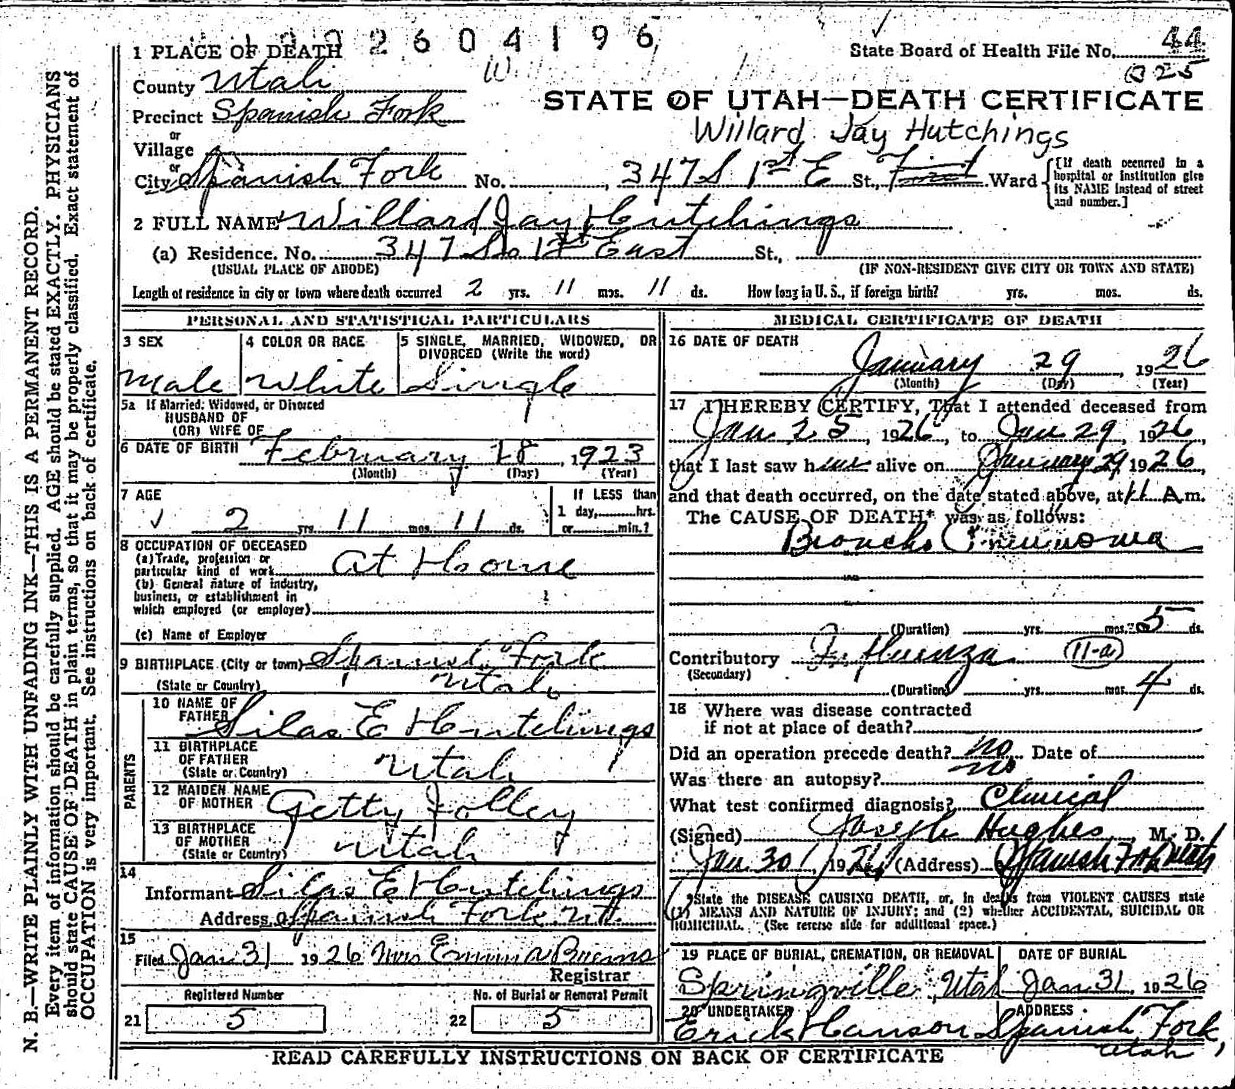 1002604196
1 PLACE OF DEATH
State Board of Health File No. 44
County Utah
W
325
STATE OF UTAH—DEATH CERTIFICATE
Precinct Spanish Fork
Willard Jay Hutchings
or
Village
or
City Spanish Fork No. 347 S 1st E St., First Ward
[If death occurred in a hospital or institution give its NAME instead of street and number.]
2 FULL NAME Willard Jay Hutchings
(a) Residence. No. 347 So 1st East St.,
(USUAL PLACE OF ABODE) (IF NON-RESIDENT GIVE CITY OR TOWN AND STATE)
Length of residence in city or town where death occurred 2 yrs. 11 mos. 11 ds. How long in U. S., if foreign birth? yrs. mos. ds.
PERSONAL AND STATISTICAL PARTICULARS
3 SEX
Male
4 COLOR OR RACE
White
5 SINGLE, MARRIED, WIDOWED, OR
DIVORCED (Write the word)
Single
5a If Married, Widowed, or Divorced
HUSBAND OF
(OR) WIFE OF
6 DATE OF BIRTH February 18, 1923
(Month) (Day) (Year)
7 AGE
2 yrs. 11 mos. 11 ds.
If LESS than
1 day, hrs.
or min.?
8 OCCUPATION OF DECEASED
(a) Trade, profession or
particular kind of work At Home
(b) General nature of industry,
business, or establishment in
which employed (or employer)
(c) Name of Employer
9 BIRTHPLACE (City or town) Spanish Fork
(State or Country) Utah
PARENTS
10 NAME OF
FATHER Silas E Hutchings
11 BIRTHPLACE
OF FATHER
(State or Country) Utah
12 MAIDEN NAME
OF MOTHER Getty Jolley
13 BIRTHPLACE
OF MOTHER
(State or Country) Utah
14
Informant Silas E Hutchings
Address Spanish Fork Ut.
15
Filed Jan 31 1926 Mrs Emma
Registrar
Registered Number
21 5
No. of Burial or Removal Permit
22 5
MEDICAL CERTIFICATE OF DEATH
16 DATE OF DEATH
January 29, 1926
(Month) (Day) (Year)
17 I HEREBY CERTIFY, That I attended deceased from
Jan 25, 1926, to Jan 29, 1926,
that I last saw him alive on January 29, 1926,
and that death occurred, on the date stated above, at 11 A m.
The CAUSE OF DEATH* was as follows:
Broncho Pneumonia
(Duration) yrs. mos. 5 ds.
Contributory Influenza 11-a
(Secondary)
(Duration) yrs. mos. 4 ds.
18 Where was disease contracted
if not at place of death?
Did an operation precede death? no Date of
Was there an autopsy? no
What test confirmed diagnosis? Clinical
(Signed) Joseph Hughes, M. D.
Jan 30 1926 (Address) Spanish Fork Utah
*State the DISEASE CAUSING DEATH, or, in deaths from VIOLENT CAUSES state
(1) MEANS AND NATURE OF INJURY; and (2) whether ACCIDENTAL, SUICIDAL OR
HOMICIDAL. (See reverse side for additional space.)
19 PLACE OF BURIAL, CREMATION, OR REMOVAL
Springville, Utah
DATE OF BURIAL
Jan 31, 1926
20 UNDERTAKER
Erick Hanson
ADDRESS
Spanish Fork,
Utah
READ CAREFULLY INSTRUCTIONS ON BACK OF CERTIFICATE
N. B.—WRITE PLAINLY WITH UNFADING INK—THIS IS A PERMANENT RECORD.
Every item of information should be carefully supplied. AGE should be stated EXACTLY. PHYSICIANS
should state CAUSE OF DEATH in plain terms, so that it may be properly classified. Exact statement of
OCCUPATION is very important. See instructions on back of certificate.